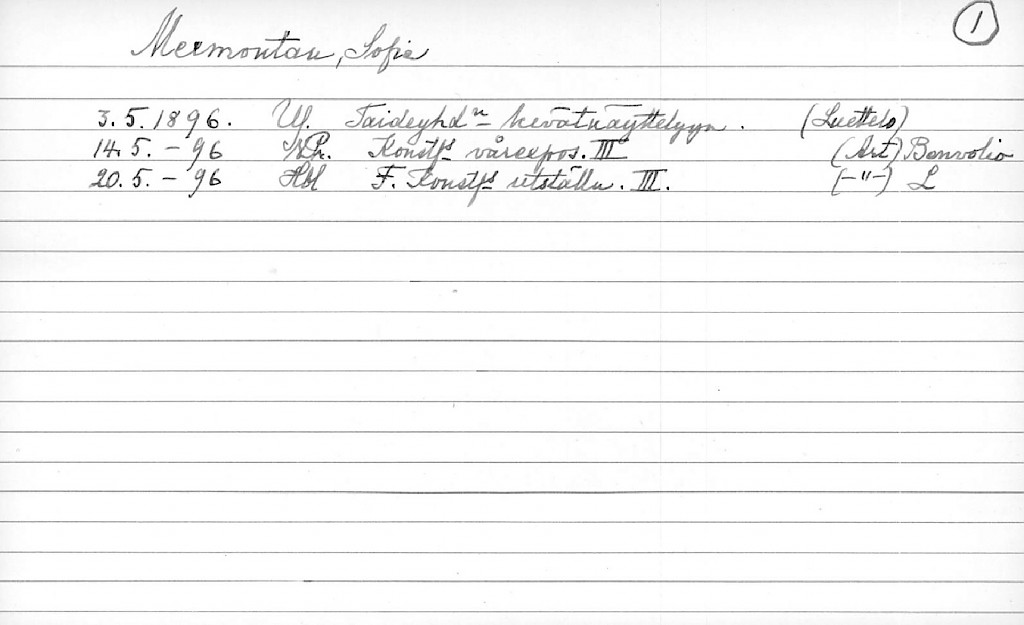 1
Mexmontan, Sofie
3.5.1896. U.S. Taideyhd:n kevätnäyttelyyn. (Luettelo)
14.5.-96 N.Pr. Konstf:s vårexpos. III (Art) Benvolio
20.5.-96 Hbl F. Konstf:s utställn. III. (-"-) L